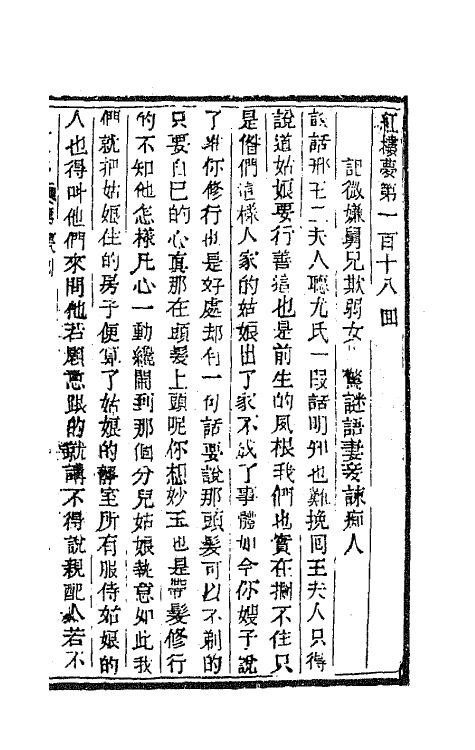 紅樓夢第一百十八回
記微嫌舅兄欺弱女 驚謎語妻妾諫痴人
說話邢王二夫人聽尤氏一叚話明知也難挽囘王夫人只得
說道姑娘要行善這也是前生的夙根我們也實在攔不住只
是偺們這樣人家的姑娘出了家不成了事體如今你嫂子說
了准你修行也是好處却有一句話要說那頭髮可以不剃的
只要自已的心真那在頭髮上頭呢你想妙玉也是帶髮修行
的不知他怎樣凡心一動纔鬧到那個分兒姑娘執意如此我
們就把姑娘住的房子便算了姑娘的靜室所有服侍姑娘的
人也得叫他們來問他若願意跟的就講不得說親配人若不